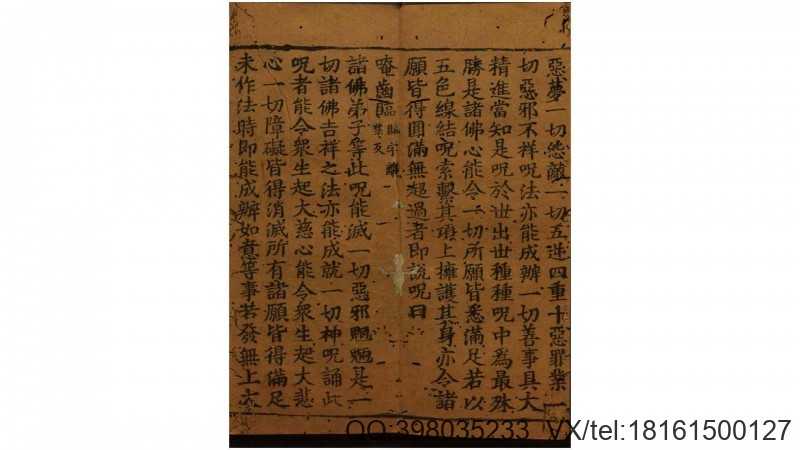 惡夢一切怨敵一切五逆四重十惡罪業一
切惡邪不祥呪法亦能成辦一切善事具大
精進當知是呪於世出世種種呪中為最殊
勝是諸佛心能令一切所願皆悉滿足若以
五色線結呪索繫其項上擁護其身亦令諸
願皆得圓滿無超過者即說呪曰
唵齒
諸佛弟子等此呪能滅一切惡邪魍魎是一
切諸佛吉祥之法亦能成就一切神呪誦此
呪者能令衆生起大慈心能令衆生起大悲
心一切障礙皆得消滅所有諸願皆得滿足
未作法時即能成辦如意等事若發無上大
QQ:398035233 VX/tel:18161500127